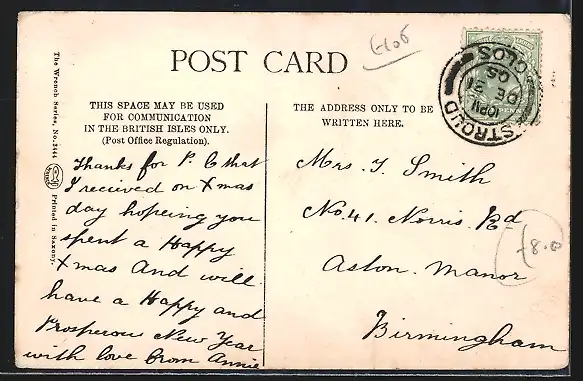 POST CARD
THIS SPACE MAY BE USED
FOR COMMUNICATION
IN THE BRITISH ISLES ONLY.
(Post Office Regulation).
Thanks for P. C that
I recived on Xmas
day hopeing you
spent a Happy
Xmas And will
have a Happy and
Prosperous New Year
with love from Annie
THE ADDRESS ONLY TO BE
WRITTEN HERE.
Mrs. J. Smith
No. 41. Norris. Rd
Aston. Manor
Birmingham
STROUD
GLOS
10 PM
DE
05
The Wrench Series, No.
Printed in Saxony.